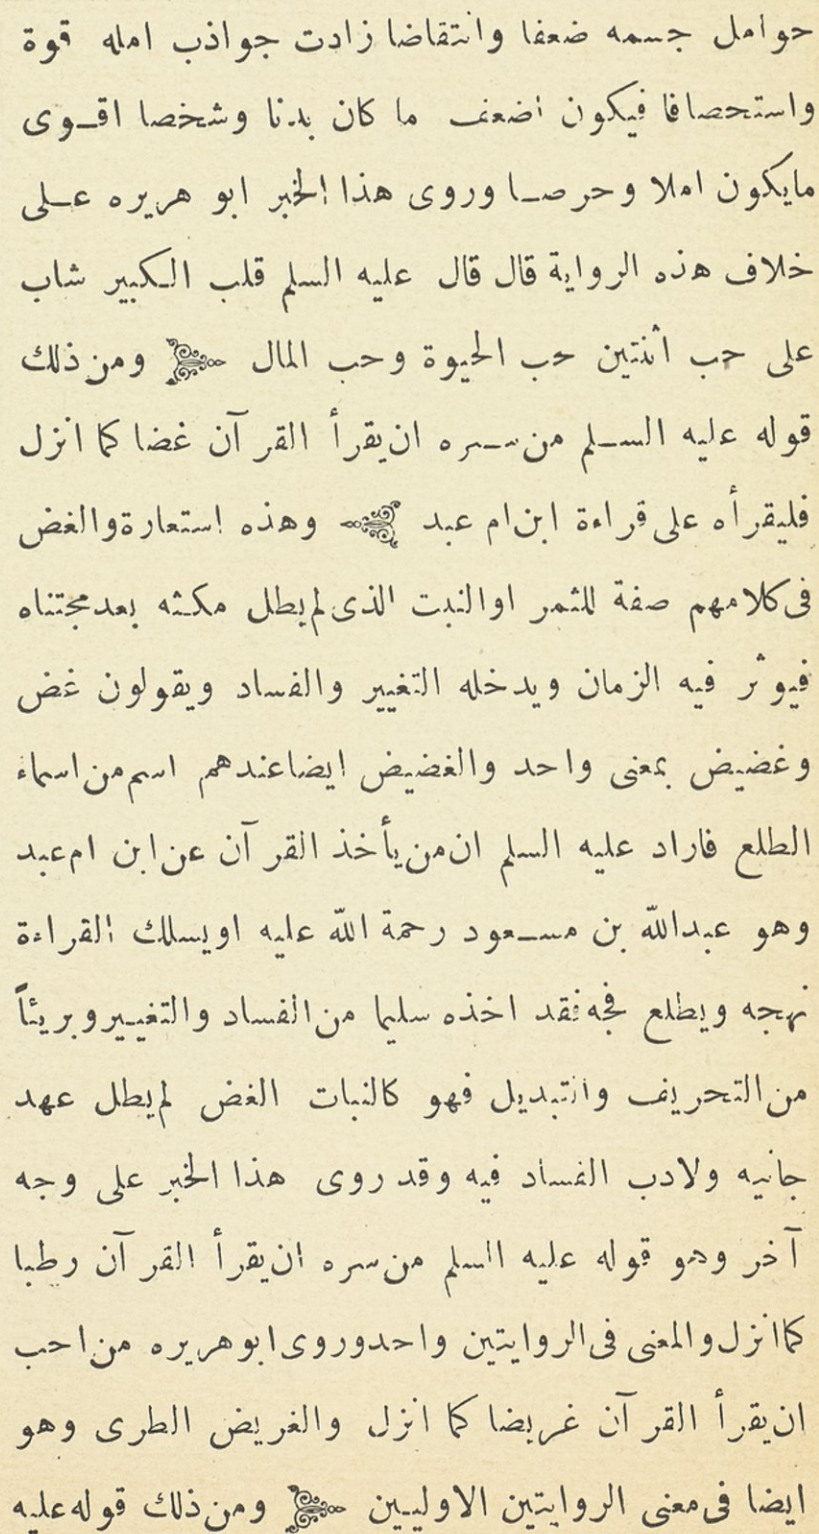 حوامل جسمه ضعفا وانتقاضا زادت جواذب امله قوة
واستحصافا فيكون اضعف ما كان بدنا وشخصا اقوى
مايكون املا وحرصا وروى هذا الخبر ابو هريره على
خلاف هذه الرواية قال قال عليه السلم قلب الكبير شاب
على حب اثنتين حب الحيوة وحب المال ومن ذلك
قوله عليه السلم من سره ان يقرأ القرآن غضا كما انزل
فليقرأه على قراءة ابن ام عبد وهذه استعارة والغض
فى كلامهم صفة للثمر او النبت الذى لم يطل مكثه بعد مجتناه
فيوثر فيه الزمان ويدخله التغيير والفساد ويقولون غض
وغضيض بمعنى واحد والغضيض ايضا عندهم اسم من اسماء
الطلع فاراد عليه السلم ان من يأخذ القرآن عن ابن ام عبد
وهو عبدالله بن مسعود رحمة الله عليه او يسلك القراءة
نهجه ويطلع فجه فقد اخذه سليما من الفساد والتغيير وبريئاً
من التحريف والتبديل فهو كالنبات الغض لم يطل عهد
جانيه ولا دب الفساد فيه وقد روى هذا الخبر على وجه
آخر وهو قوله عليه السلم من سره ان يقرأ القرآن رطبا
كما انزل والمعنى فى الروايتين واحد وروى ابو هريره من احب
ان يقرأ القرآن غريضا كما انزل والغريض الطرى وهو
ايضا فى معنى الروايتين الاوليين ومن ذلك قوله عليه